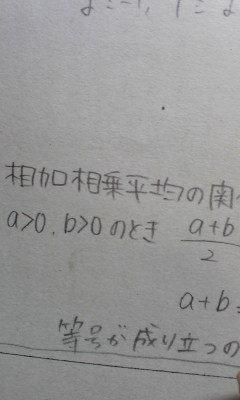 相加相乗平均の関
a>0, b>0のとき a+b/2
a+b
等号が成り立つの